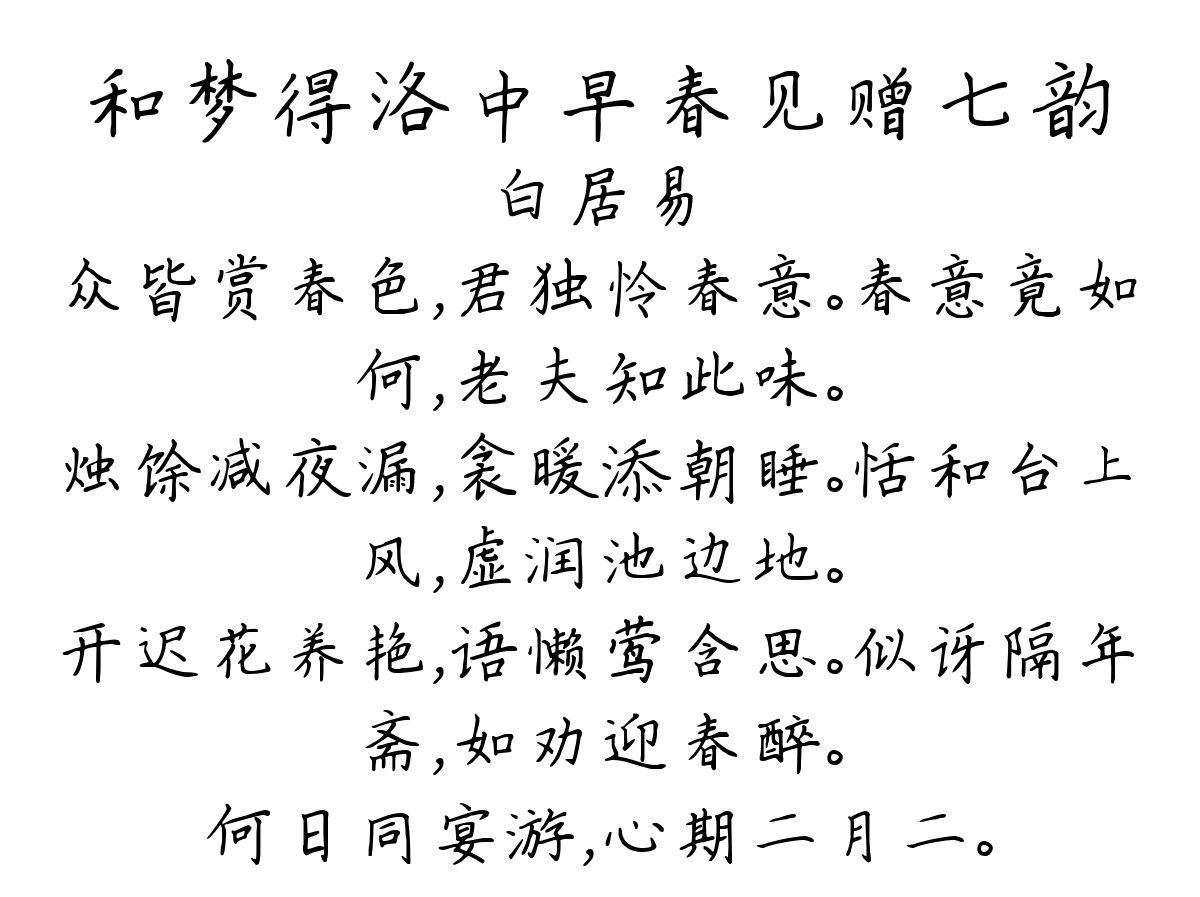 和梦得洛中早春见赠七韵
白居易
众皆赏春色,君独怜春意。春意竟如
何,老夫知此味。
烛馀减夜漏,衾暖添朝睡。恬和台上
风,虚润池边地。
开迟花养艳,语懒莺含思。似讶隔年
斋,如劝迎春醉。
何日同宴游,心期二月二。